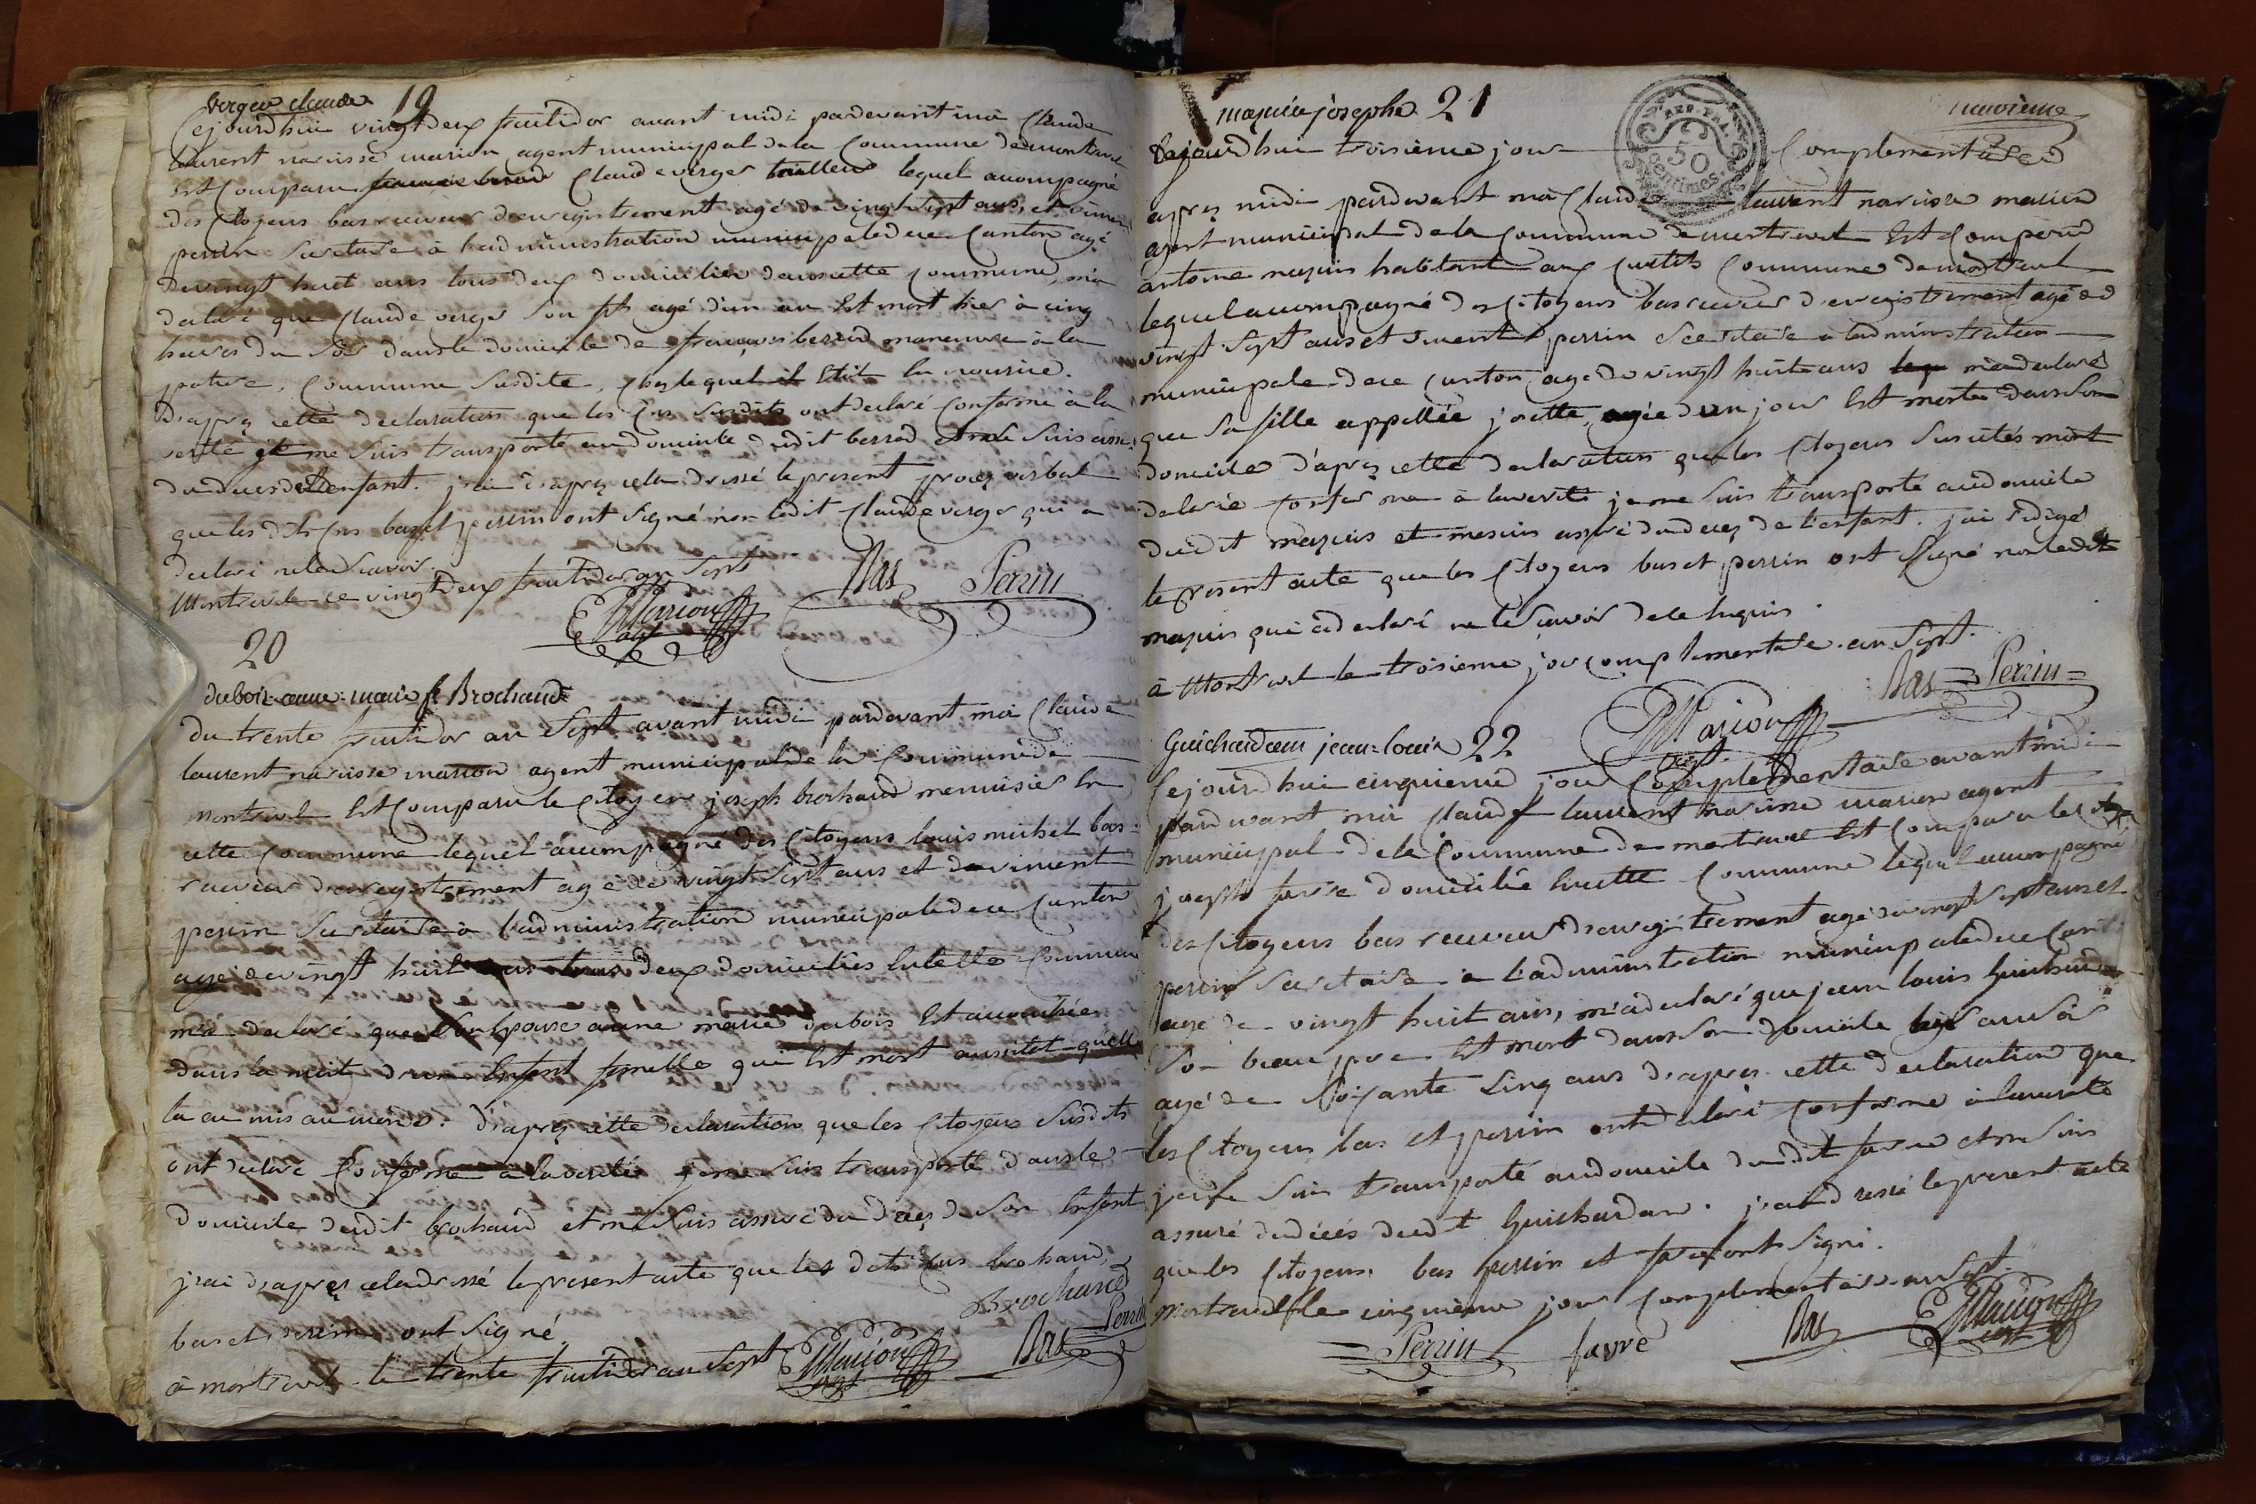 verger claude 19
Cejourdhui vingt deux fructidor avant midi pardevant moi Claude
laurent narcisse marion agent municipal de la Commune de montrevel
est Comparu Claude verger lequel acompagné
des Citoyens bas receveur denregistrement agé de vingt sept ans, et vincent
perrin Secretaire à ladministration municipale de ce Canton agé
de vingt huit ans tous deux domiciliés dans cette Commune, m'a
declaré que Claude verger son fils agé d'un an Est mort hier à cinq
heures du Soir dans le domicile de francois berrod manœuvre à la
Commune Susdite, chez lequel il Etoit En nourice.
D'apres cette declaration que les Cns Susdits ont declaré Conforme à la
verité je me Suis transporté au domicile dudit berrod et me Suis assuré
du deces de l'enfant. j'ai d'apres cela dressé le present procez verbal
que lesdits Cns bas et perrin ont signé non ledit Claude verger qui a
declaré ne le Scavoir.
Montrevel ce vingt deux fructidor an Sept
Marion agt Bas Perrin
20
dubois anne marie fe Brochand
du trente fructidor an Sept avant midi pardevant moi Claude
laurent narcisse marion agent municipal de la Commune de
Montrevel Est Comparu le Citoyen joseph brochand menuisier En
cette Commune lequel acompagné des Citoyens louis michel bas
receveur denregistrement agé de vingt Sept ans et de vincent
perrin Secretaire à l'administration municipale de ce Canton
agé de vingt huit ans tous deux domiciliés En cette Commune
m'a declaré que Son Epouse anne marie dubois Est accouchée
dans la nuit d'un Enfant femelle qui Est mort aussitot quelle
la eu mis au monde. D'apres cette declaration que les Citoyens Susdits
ont declaré Conforme à la verité je me Suis transporté dans le
domicile dudit brochand et me Suis assuré du deces de Son Enfant
j'ai d'apres cela dressé le present acte que les dits Cns brochand,
bas et perrin ont Signé.
à montrevel le trente fructidor an Sept
Brochand Marion agt Bas Perrin
neuvieme
maxuis josephe 21
50 Centimes
Cejourdhui troisieme jour Complementaire
apres midi pardevant moi Claude laurent narcisse marion
agent municipal de la Commune de montrevel Est Comparu
antoine maxuis habitant aux Curtils Commune de montrevel
lequel acompagné des Citoyens bas receveur denregistrement agé de
vingt Sept ans et vincent perrin Secretaire à ladministration
municipale de ce Canton agé de vingt huit ans m'a declaré
que Sa fille appellée josette agée d'un jour Est morte dans Son
domicile d'apres cette declaration que les Citoyens Suscités m'ont
declarée Conforme à la verité je me Suis transporté au domicile
dudit maxuis et me suis assuré du deces de l'enfant. j'ai rédigé
le present acte que les Citoyens bas et perrin ont Signé non ledit
maxuis qui a declaré ne le Scavoir de ce Enquis.
à Montrevel le troisieme jour complementaire an Sept.
Marion agt. Bas Perrin
Guichardan jean-louis 22
Cejourdhui cinquieme jour Complementaire avant midi
pardevant moi Claude laurent narcisse marion agent
municipal de la Commune de montrevel Est Comparu le Citoyen
joseph favre domicilié En cette Commune lequel acompagné
des Citoyens bas receveur denregistrement agé de vingt Sept ans et
perrin Secretaire à l'administration municipale de ce Canton
agé de vingt huit ans, m'a declaré que jean louis Guichardan
Son beau pere Est mort dans Son domicile hier au Soir
agé de Soixante Cinq ans d'apres cette declaration que
les Citoyens bas et perrin ont declaré Conforme à la verité
je me Suis transporté au domicile dudit favre et me Suis
assuré du décés dudit Guichardan. j'ai dressé le present acte
que les Citoyens bas perrin et favre ont Signé.
Montrevel le cinquieme jour Complementaire an Sept.
Perrin favre Bas Marion agt